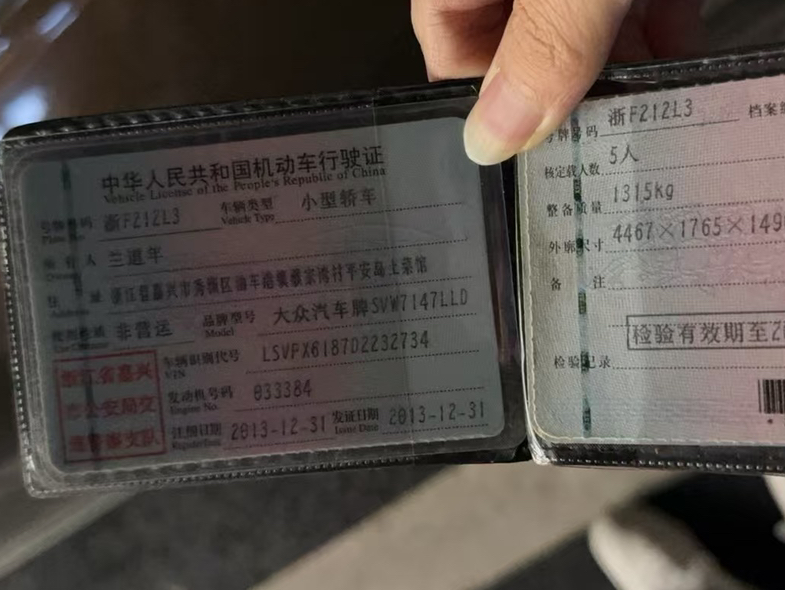 中华人民共和国机动车行驶证
Vehicle License of the People's Republic of China
号牌号码 浙F212L3 车辆类型 小型轿车
Plate No. Vehicle Type
所有人 兰道年
Owner
住址 浙江省嘉兴市秀洲区油车港
Address
使用性质 非营运 品牌型号 大众汽车牌SVW7147LLD
Use Character Model
车辆识别代号 LSVPX6187D2232734
VIN
发动机号码 033384
Engine No.
注册日期 2013-12-31 发证日期 2013-12-31
Register Date Issue Date
浙江省嘉兴
市公安局交
通警察支队
号牌号码 浙F212L3 档案编
核定载人数 5人
整备质量 1315kg
外廓尺寸 4467×1765×149
备注
检验有效期至20
检验记录